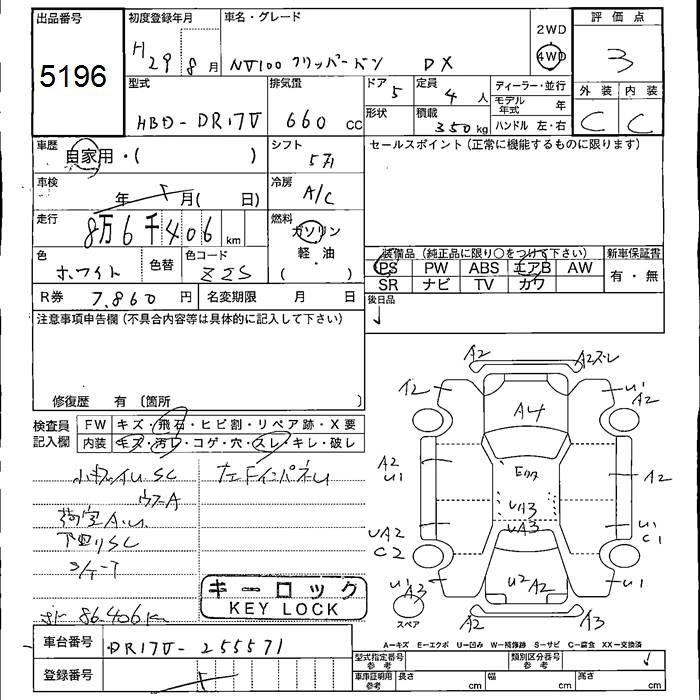 出品番号
5196
初度登録年月
H 29 8 月
車名・グレード
NV100 クリッパーバン DX
2WD
4WD
評価点
3
型式
HBD-DR17V
排気量
660 CC
ドア
5
形状
定員
4 人
積載
350 kg
ディーラー・並行
モデル年式 年
ハンドル 左・右
外装
内装
C
C
車歴
自家用・( )
シフト
5
セールスポイント(正常に機能するものに限ります)
車検
年 月( 日)
冷房
A/C
走行
8万6千406 km
燃料
ガソリン
・
軽・油
( )
色
ホワイト
色替
色コード
Z2S
装備品(純正品に限り○をつけて下さい)
新車保証書
PS PW ABS エアB AW
SR ナビ TV カワ
有・無
R券 7,860 円
名変期限 月 日
後日品
注意事項申告欄(不具合内容等は具体的に記入して下さい)
修復歴 有〔箇所 〕
検査員記入欄
FW キズ・飛石・ヒビ割・リペア跡・X要
内装 キズ・汚レ・コゲ・穴・スレ・キレ・破レ
荷室A.U
下回りSC
86,406km
キーロック
KEY LOCK
A2
A2
A2
A4
U1
A2
A2
U1
A2
UA3
UA3
UA2
C2
U1
C1
U1
A3
U2
A2
U1
A2
A3
スペア
A−キズ E−エクボ U−凹み W−補修跡 S−サビ C−腐食 XX−交換済
車台番号
DR17V-255571
登録番号
型式指定番号
参考
類別区分番号
参考
車庫証明用
参考
長さ cm
幅 cm
高さ cm